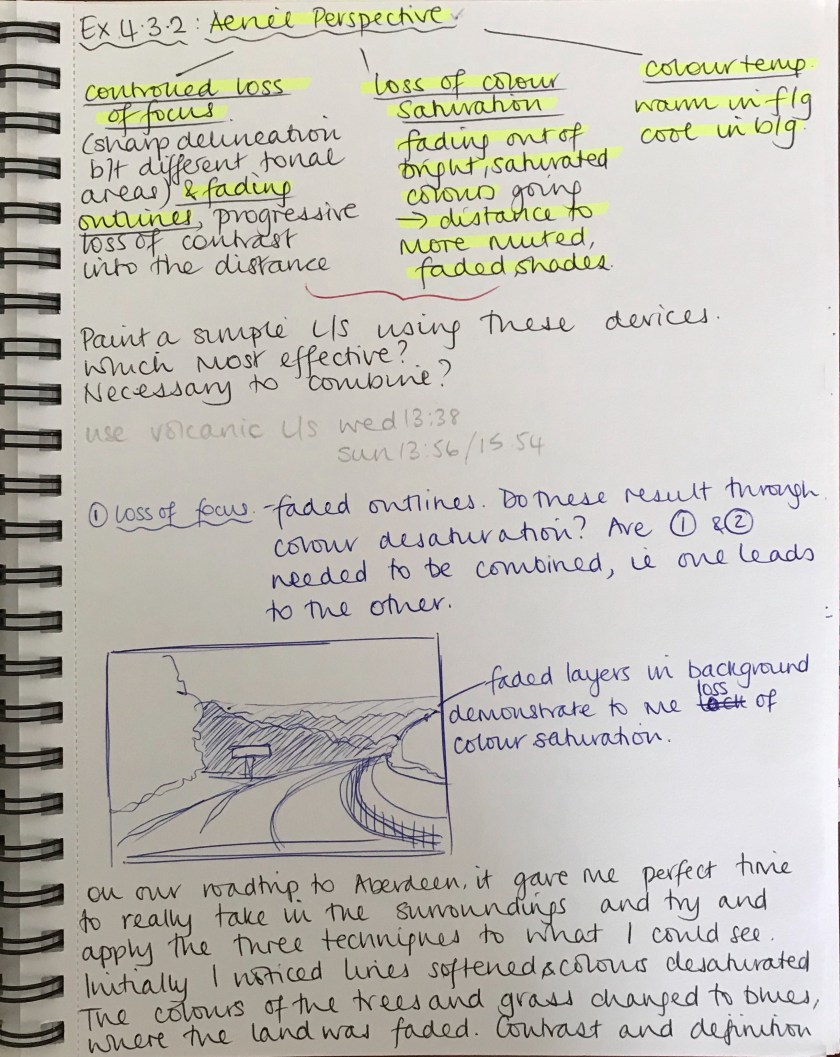 Ex 4.3.2: Aeriel Perspective
controlled loss
of focus
(sharp delineation
b/t different tonal
areas) & fading
outlines, progressive
loss of contrast
into the distance
loss of colour
saturation
fading out of
bright, saturated
colours going
→ distance to
more muted,
faded shades.
colour temp.
warm in f/g
cool in b/g.
Paint a simple L/S using these devices.
Which most effective?
Necessary to combine?
use volcanic L/S wed 13:38
sun 13:56/15.54
① loss of focus - faded outlines. Do these result through
colour desaturation? Are ① & ②
needed to be combined, ie one leads
to the other.
faded layers in background
demonstrate to me loss of
colour saturation.
on our roadtrip to Aberdeen, it gave me perfect time
to really take in the surroundings and try and
apply the three techniques to what I could see.
Initially I noticed lines softened & colours desaturated
The colours of the trees and grass changed to blues,
where the land was faded. Contrast and definition